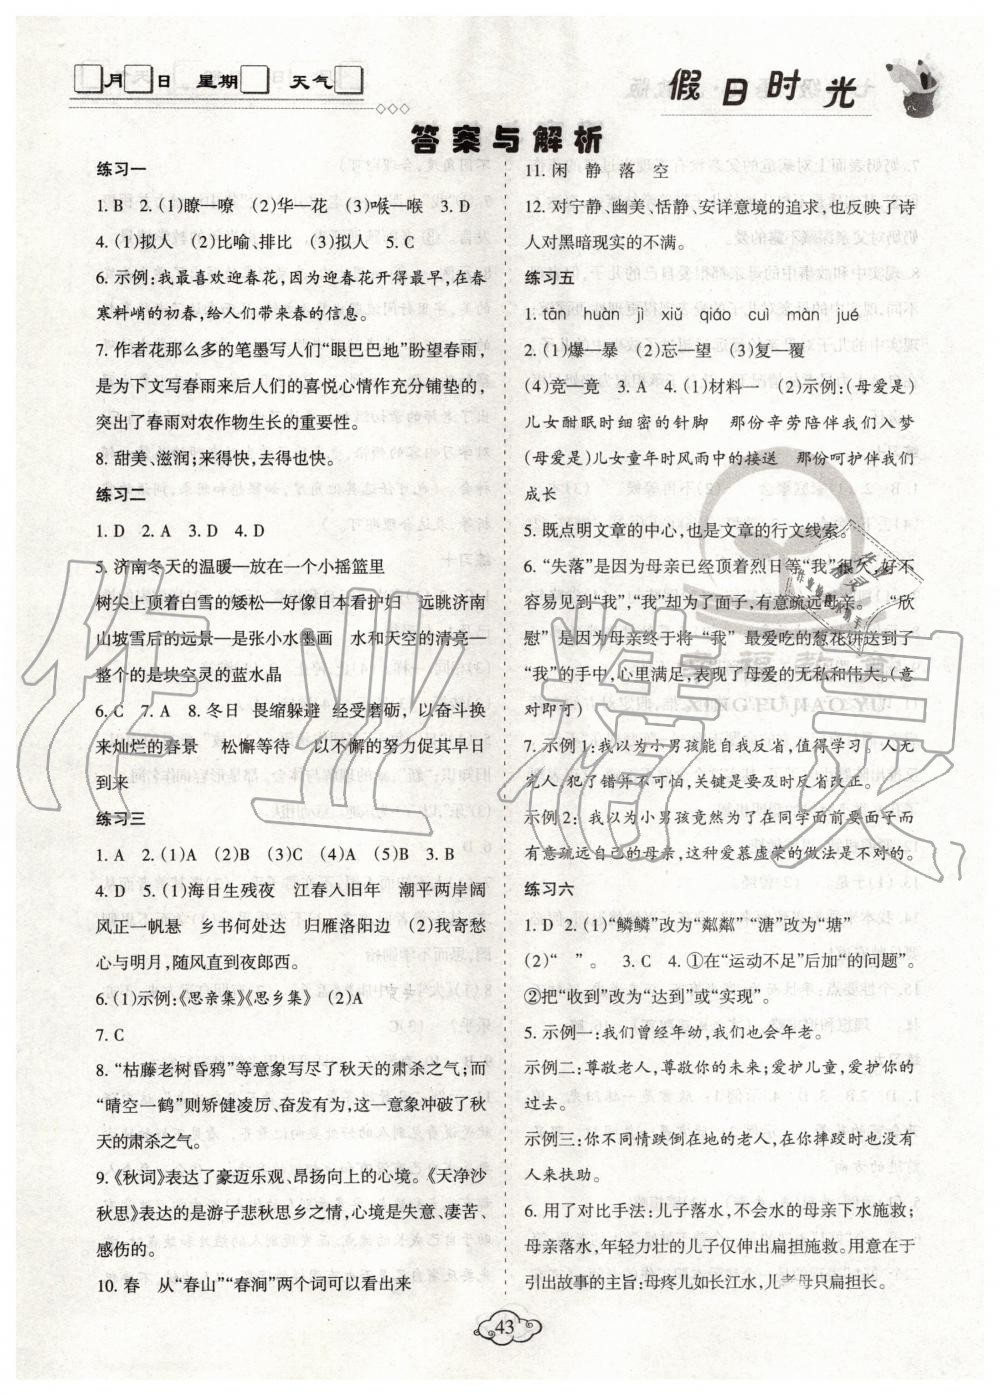 月 日 星期 天气
假日时光
答案与解析
练习一
1. B 2. (1)瞭—嘹 (2)华—花 (3)喉—喉 3. D
4. (1)拟人 (2)比喻、排比 (3)拟人 5. C
6. 示例:我最喜欢迎春花,因为迎春花开得最早,在春
寒料峭的初春,给人们带来春的信息。
7. 作者花那么多的笔墨写人们“眼巴巴地”盼望春雨,
是为下文写春雨来后人们的喜悦心情作充分铺垫的,
突出了春雨对农作物生长的重要性。
8. 甜美、滋润;来得快,去得也快。
练习二
1. D 2. A 3. D 4. D
5. 济南冬天的温暖—放在一个小摇篮里
树尖上顶着白雪的矮松—好像日本看护妇 远眺济南
山坡雪后的远景—是张小水墨画 水和天空的清亮—
整个的是块空灵的蓝水晶
6. C 7. A 8. 冬日 畏缩躲避 经受磨砺，以奋斗换
来灿烂的春景 松懈等待 以不懈的努力促其早日
到来
练习三
1. A 2. (1)A (2)B (3)C (4)A (5)B 3. B
4. D 5. (1)海日生残夜 江春入旧年 潮平两岸阔
风正一帆悬 乡书何处达 归雁洛阳边 (2)我寄愁
心与明月,随风直到夜郎西。
6. (1)示例:《思亲集》《思乡集》 (2)A
7. C
8. “枯藤老树昏鸦”等意象写尽了秋天的肃杀之气;而
“晴空一鹤”则矫健凌厉、奋发有为,这一意象冲破了秋
天的肃杀之气。
9.《秋词》表达了豪迈乐观、昂扬向上的心境。《天净沙
秋思》表达的是游子悲秋思乡之情,心境是失意、凄苦、
感伤的。
10. 春 从“春山”“春涧”两个词可以看出来
11. 闲 静 落 空
12. 对宁静、幽美、恬静、安详意境的追求,也反映了诗
人对黑暗现实的不满。
练习五
1. tān huàn jì xiǔ qiáo cuì màn jué
2. (1)爆—暴 (2)忘—望 (3)复—覆
(4)竞—竟 3. A 4. (1)材料一 (2)示例:(母爱是)
儿女酣眠时细密的针脚 那份辛劳陪伴我们入梦
(母爱是)儿女童年时风雨中的接送 那份呵护伴我们
成长
5. 既点明文章的中心,也是文章的行文线索。
6. “失落”是因为母亲已经顶着烈日等“我”很久,好不
容易见到“我”,“我”却为了面子,有意疏远母亲。 “欣
慰”是因为母亲终于将“我”最爱吃的葱花饼送到了
“我”的手中,心里满足,表现了母爱的无私和伟大。(意
对即可)
7. 示例1:我以为小男孩能自我反省,值得学习。人无
完人,犯了错并不可怕,关键是要及时反省改正。
示例2：我以为小男孩竟然为了在同学面前要面子而
有意疏远自己的母亲,这种爱慕虚荣的做法是不对的。
练习六
1. D 2. (1)“鳞鳞”改为“粼粼”“溏”改为“塘”
(2)“ ”。 3. C 4. ①在“运动不足”后加“的问题”。
②把“收到”改为“达到”或“实现”。
5. 示例一:我们曾经年幼,我们也会年老。
示例二:尊敬老人,尊敬你的未来;爱护儿童,爱护你的
过去。
示例三:你不同情跌倒在地的老人,在你摔跤时也没有
人来扶助。
6. 用了对比手法:儿子落水,不会水的母亲下水施救;
母亲落水,年轻力壮的儿子仅伸出扁担施救。用意在于
引出故事的主旨:母疼儿如长江水,儿孝母只扁担长。
43
作业精灵